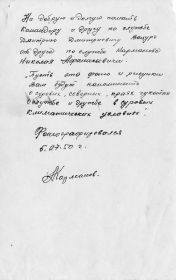 На добрую и долгую память
Командиру и другу по службе
Дмитрию Дмитриевичу
от друга по службе
Николая Афанасьевича
Пусть это фото и рисунок
Вам будут напоминать
о суровых, северных, краях Чукотки
о службе и дружбе в суровых
Климатических условиях!
Фотографировался
5.07.50 г.